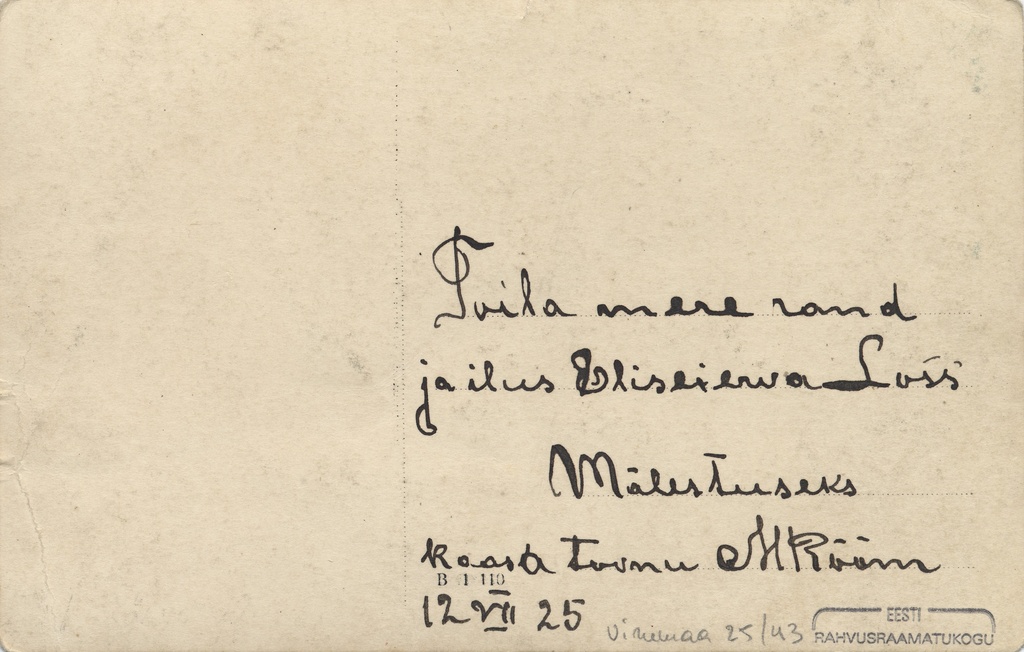 Toila mere rand
ja ilus Eliseiewa Loss
Mälestuseks
kaasa toonu MRõõm
B 1 110
12 VII 25
Virumaa 25/43
EESTI
RAHVUSRAAMATUKOGU